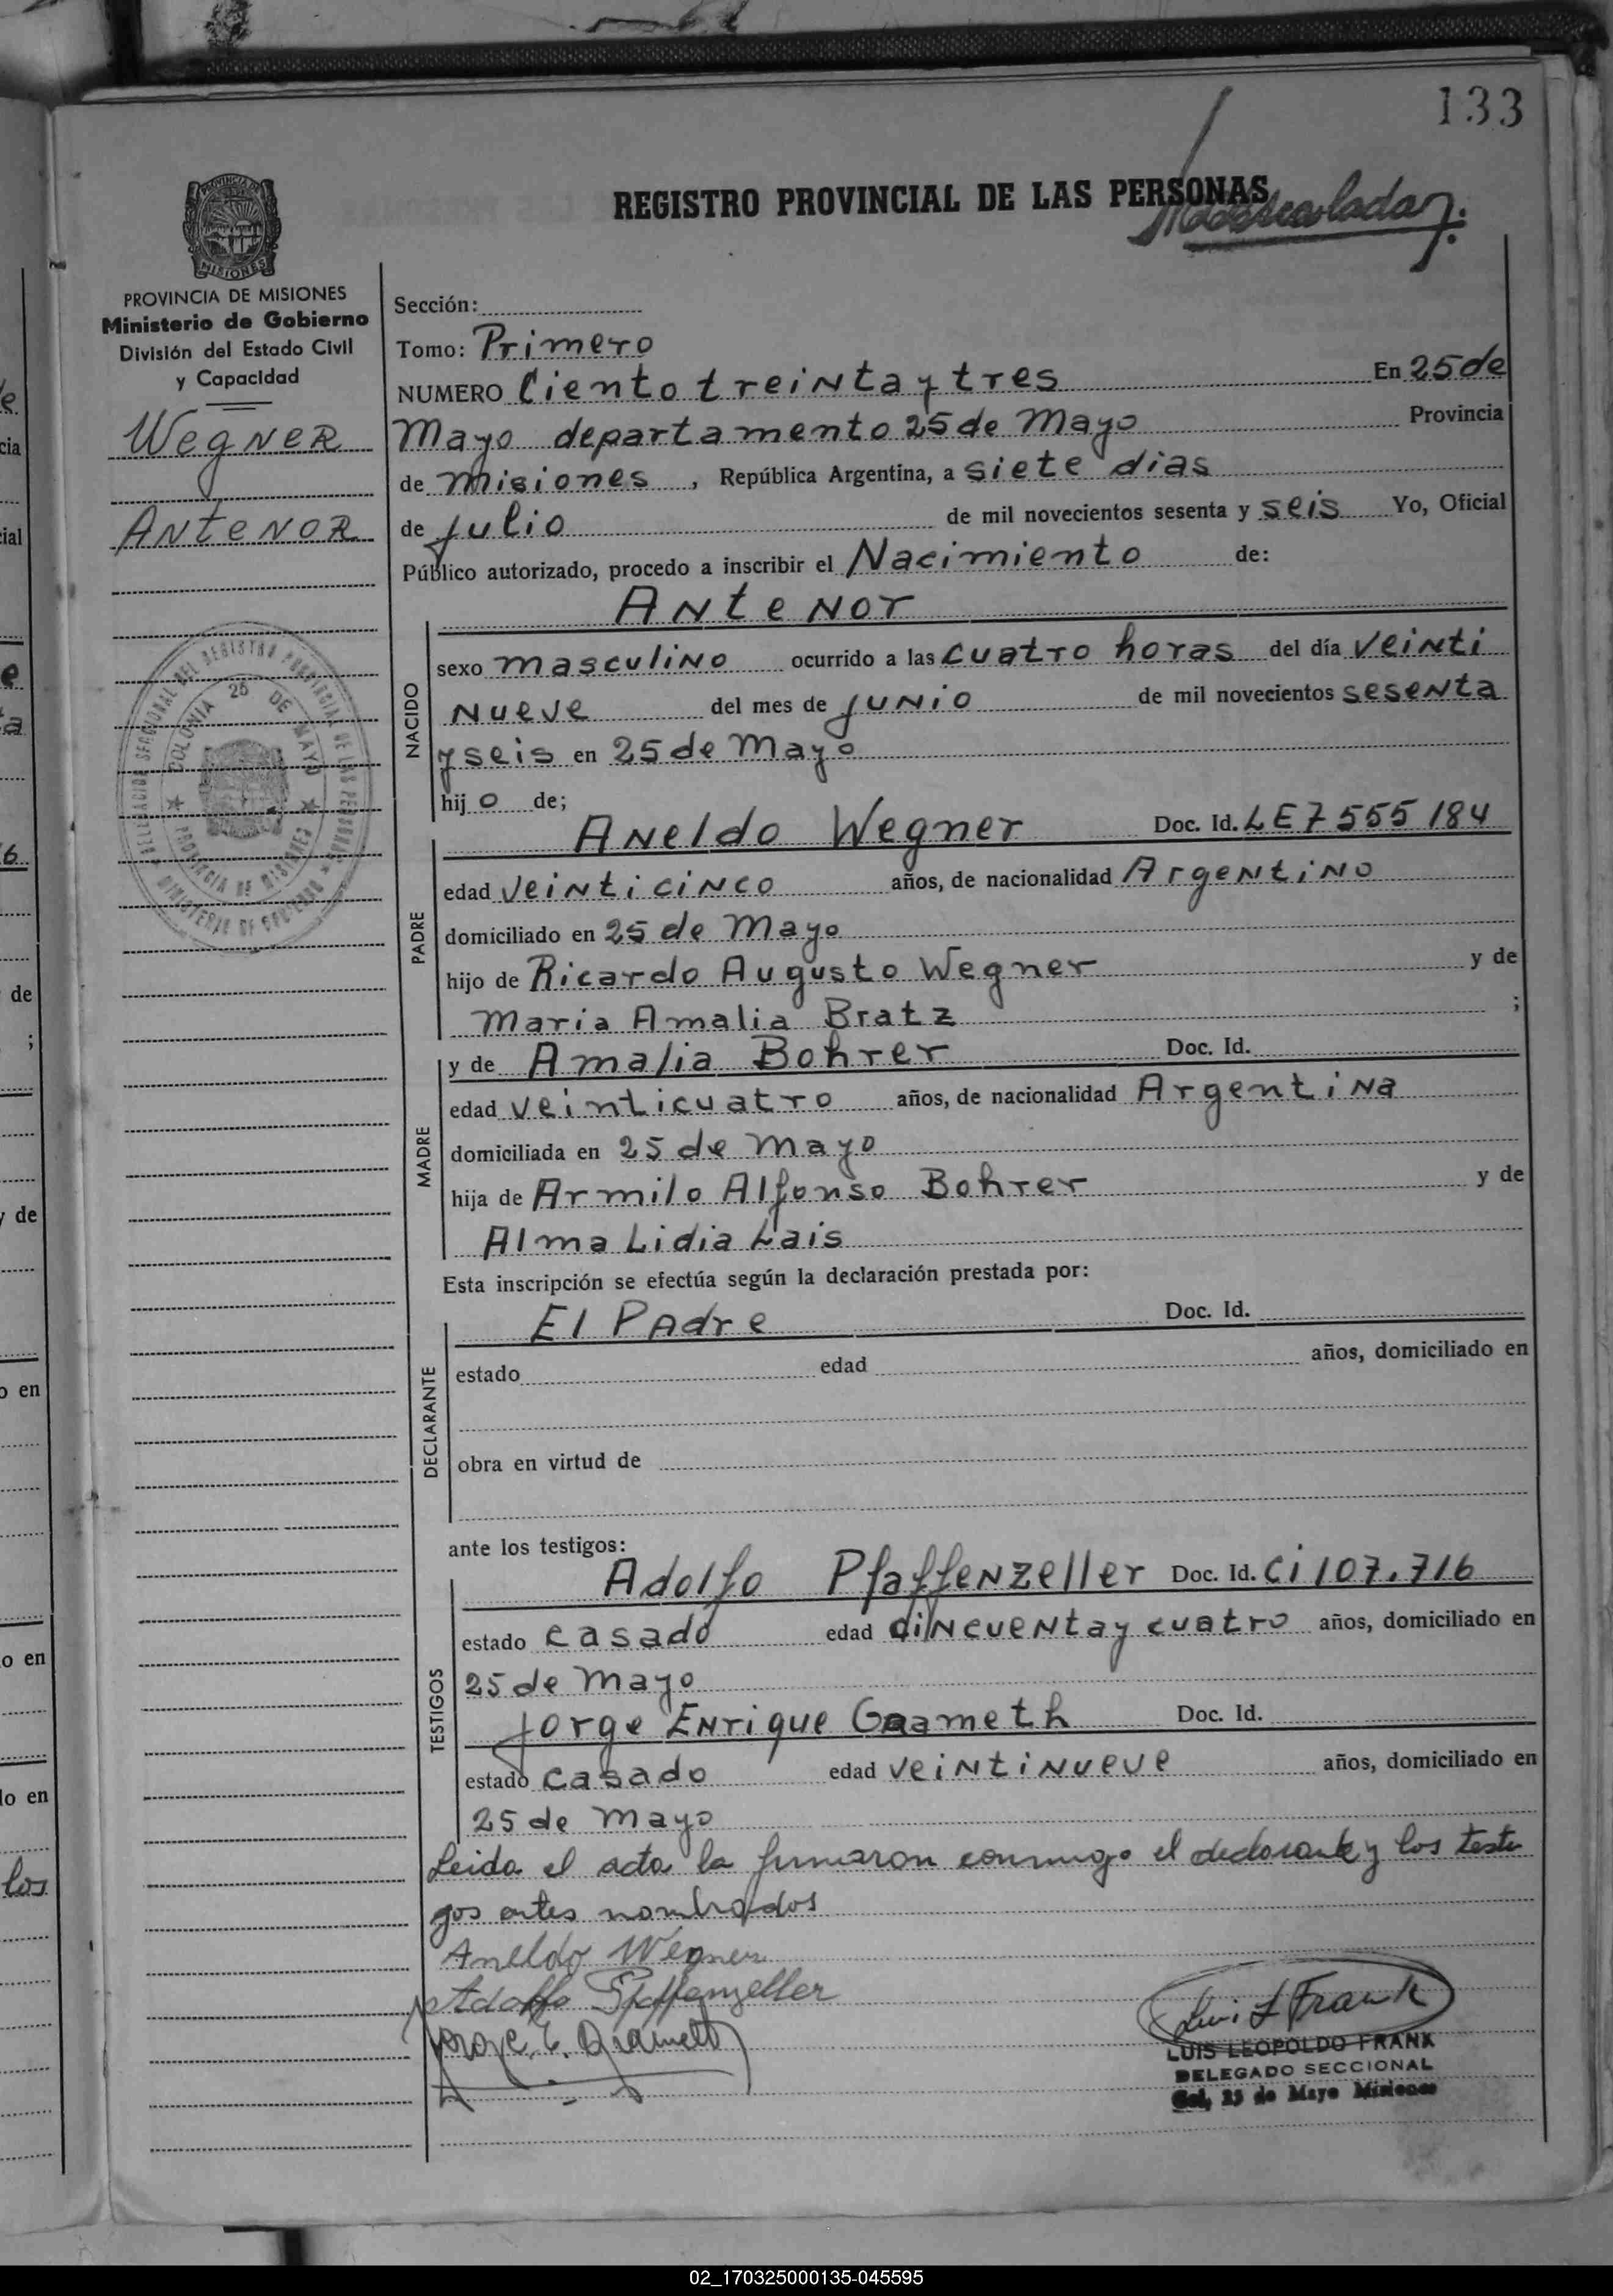 133
REGISTRO PROVINCIAL DE LAS PERSONAS
PROVINCIA DE MISIONES
Ministerio de Gobierno
División del Estado Civil
y Capacidad
Wegner
Antenor
Sección:
Tomo: Primero
NUMERO Ciento treinta y tres En 25 de
Mayo departamento 25 de Mayo Provincia
de Misiones, República Argentina, a siete dias
de julio de mil novecientos sesenta y seis Yo, Oficial
Público autorizado, procedo a inscribir el Nacimiento de:
NACIDO
Antenor
sexo masculino ocurrido a las cuatro horas del día veinti
nueve del mes de junio de mil novecientos sesenta
y seis en 25 de Mayo
hijo de;
PADRE
Aneldo Wegner Doc. Id. LE 7555184
edad veinticinco años, de nacionalidad Argentino
domiciliado en 25 de Mayo
hijo de Ricardo Augusto Wegner y de
Maria Amalia Bratz ;
MADRE
y de Amalia Bohrer Doc. Id.
edad veinticuatro años, de nacionalidad Argentina
domiciliada en 25 de Mayo
hija de Armilo Alfonso Bohrer y de
Alma Lidia Lais
Esta inscripción se efectúa según la declaración prestada por:
DECLARANTE
El Padre Doc. Id.
estado edad años, domiciliado en
obra en virtud de
ante los testigos:
TESTIGOS
Adolfo Pfaffenzeller Doc. Id. Ci 107.716
estado casado edad cincuenta y cuatro años, domiciliado en
25 de Mayo
Jorge Enrique Grameth Doc. Id.
estado casado edad veintinueve años, domiciliado en
25 de Mayo
Leida el acta la firmaron conmigo el declarante y los testi
gos antes nombrados
Aneldo Wegner
Adolfo Pfaffenzeller
Jorge E. Grameth
Luis L Frank
LUIS LEOPOLDO FRANK
DELEGADO SECCIONAL
Col. 25 de Mayo Misiones
02_170325000135-045595